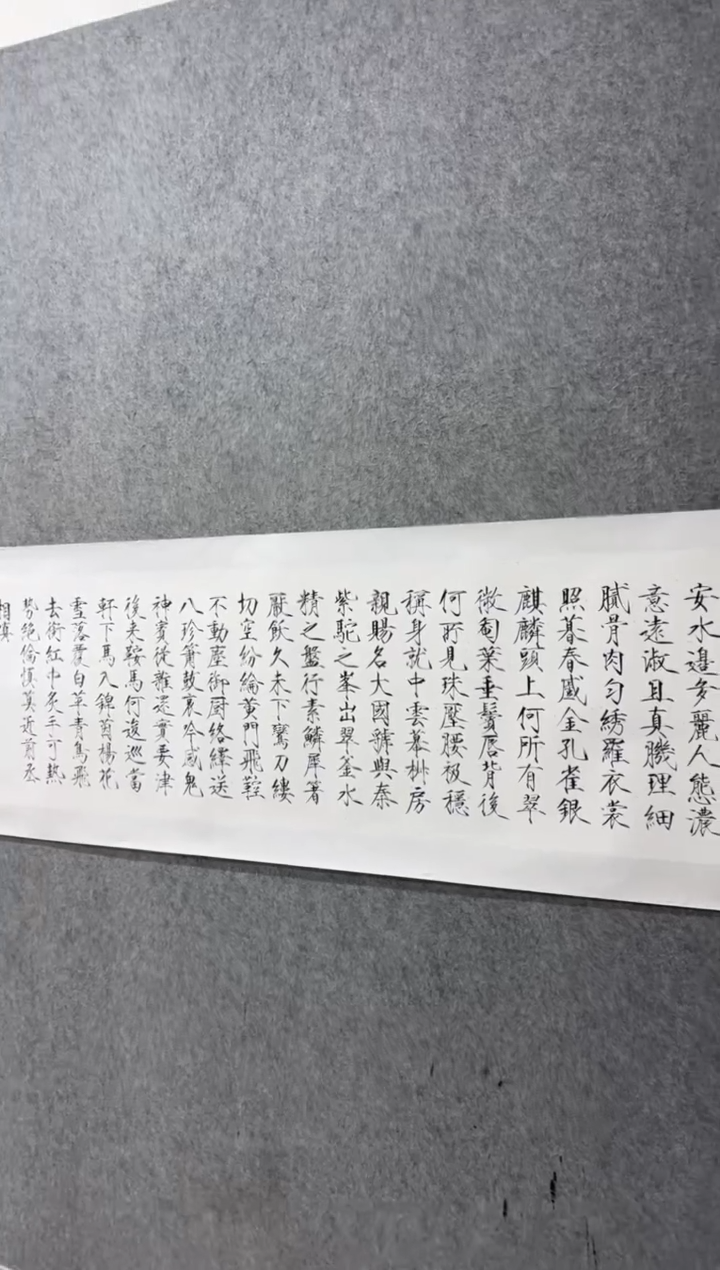 安水邊多麗人態濃
意遠淑且真肌理細
膩骨肉勻綉羅衣裳
照暮春蹙金孔雀銀
麒麟頭上何所有翠
微匎葉垂鬢唇背後
何所見珠壓腰衱穩
稱身就中雲幕椒房
親賜名大國虢與秦
紫駝之峯出翠釜水
精之盤行素鱗犀箸
厭飫久未下鸞刀縷
切空紛綸黃門飛鞚
不動塵御厨絡繹送
八珍簫鼓哀吟感鬼
神賓從雜遝實要津
後来鞍馬何逡巡當
軒下馬入錦茵楊花
雪落覆白苹青鳥飛
去銜紅巾炙手可熱
勢絕倫慎莫近前丞
相嗔